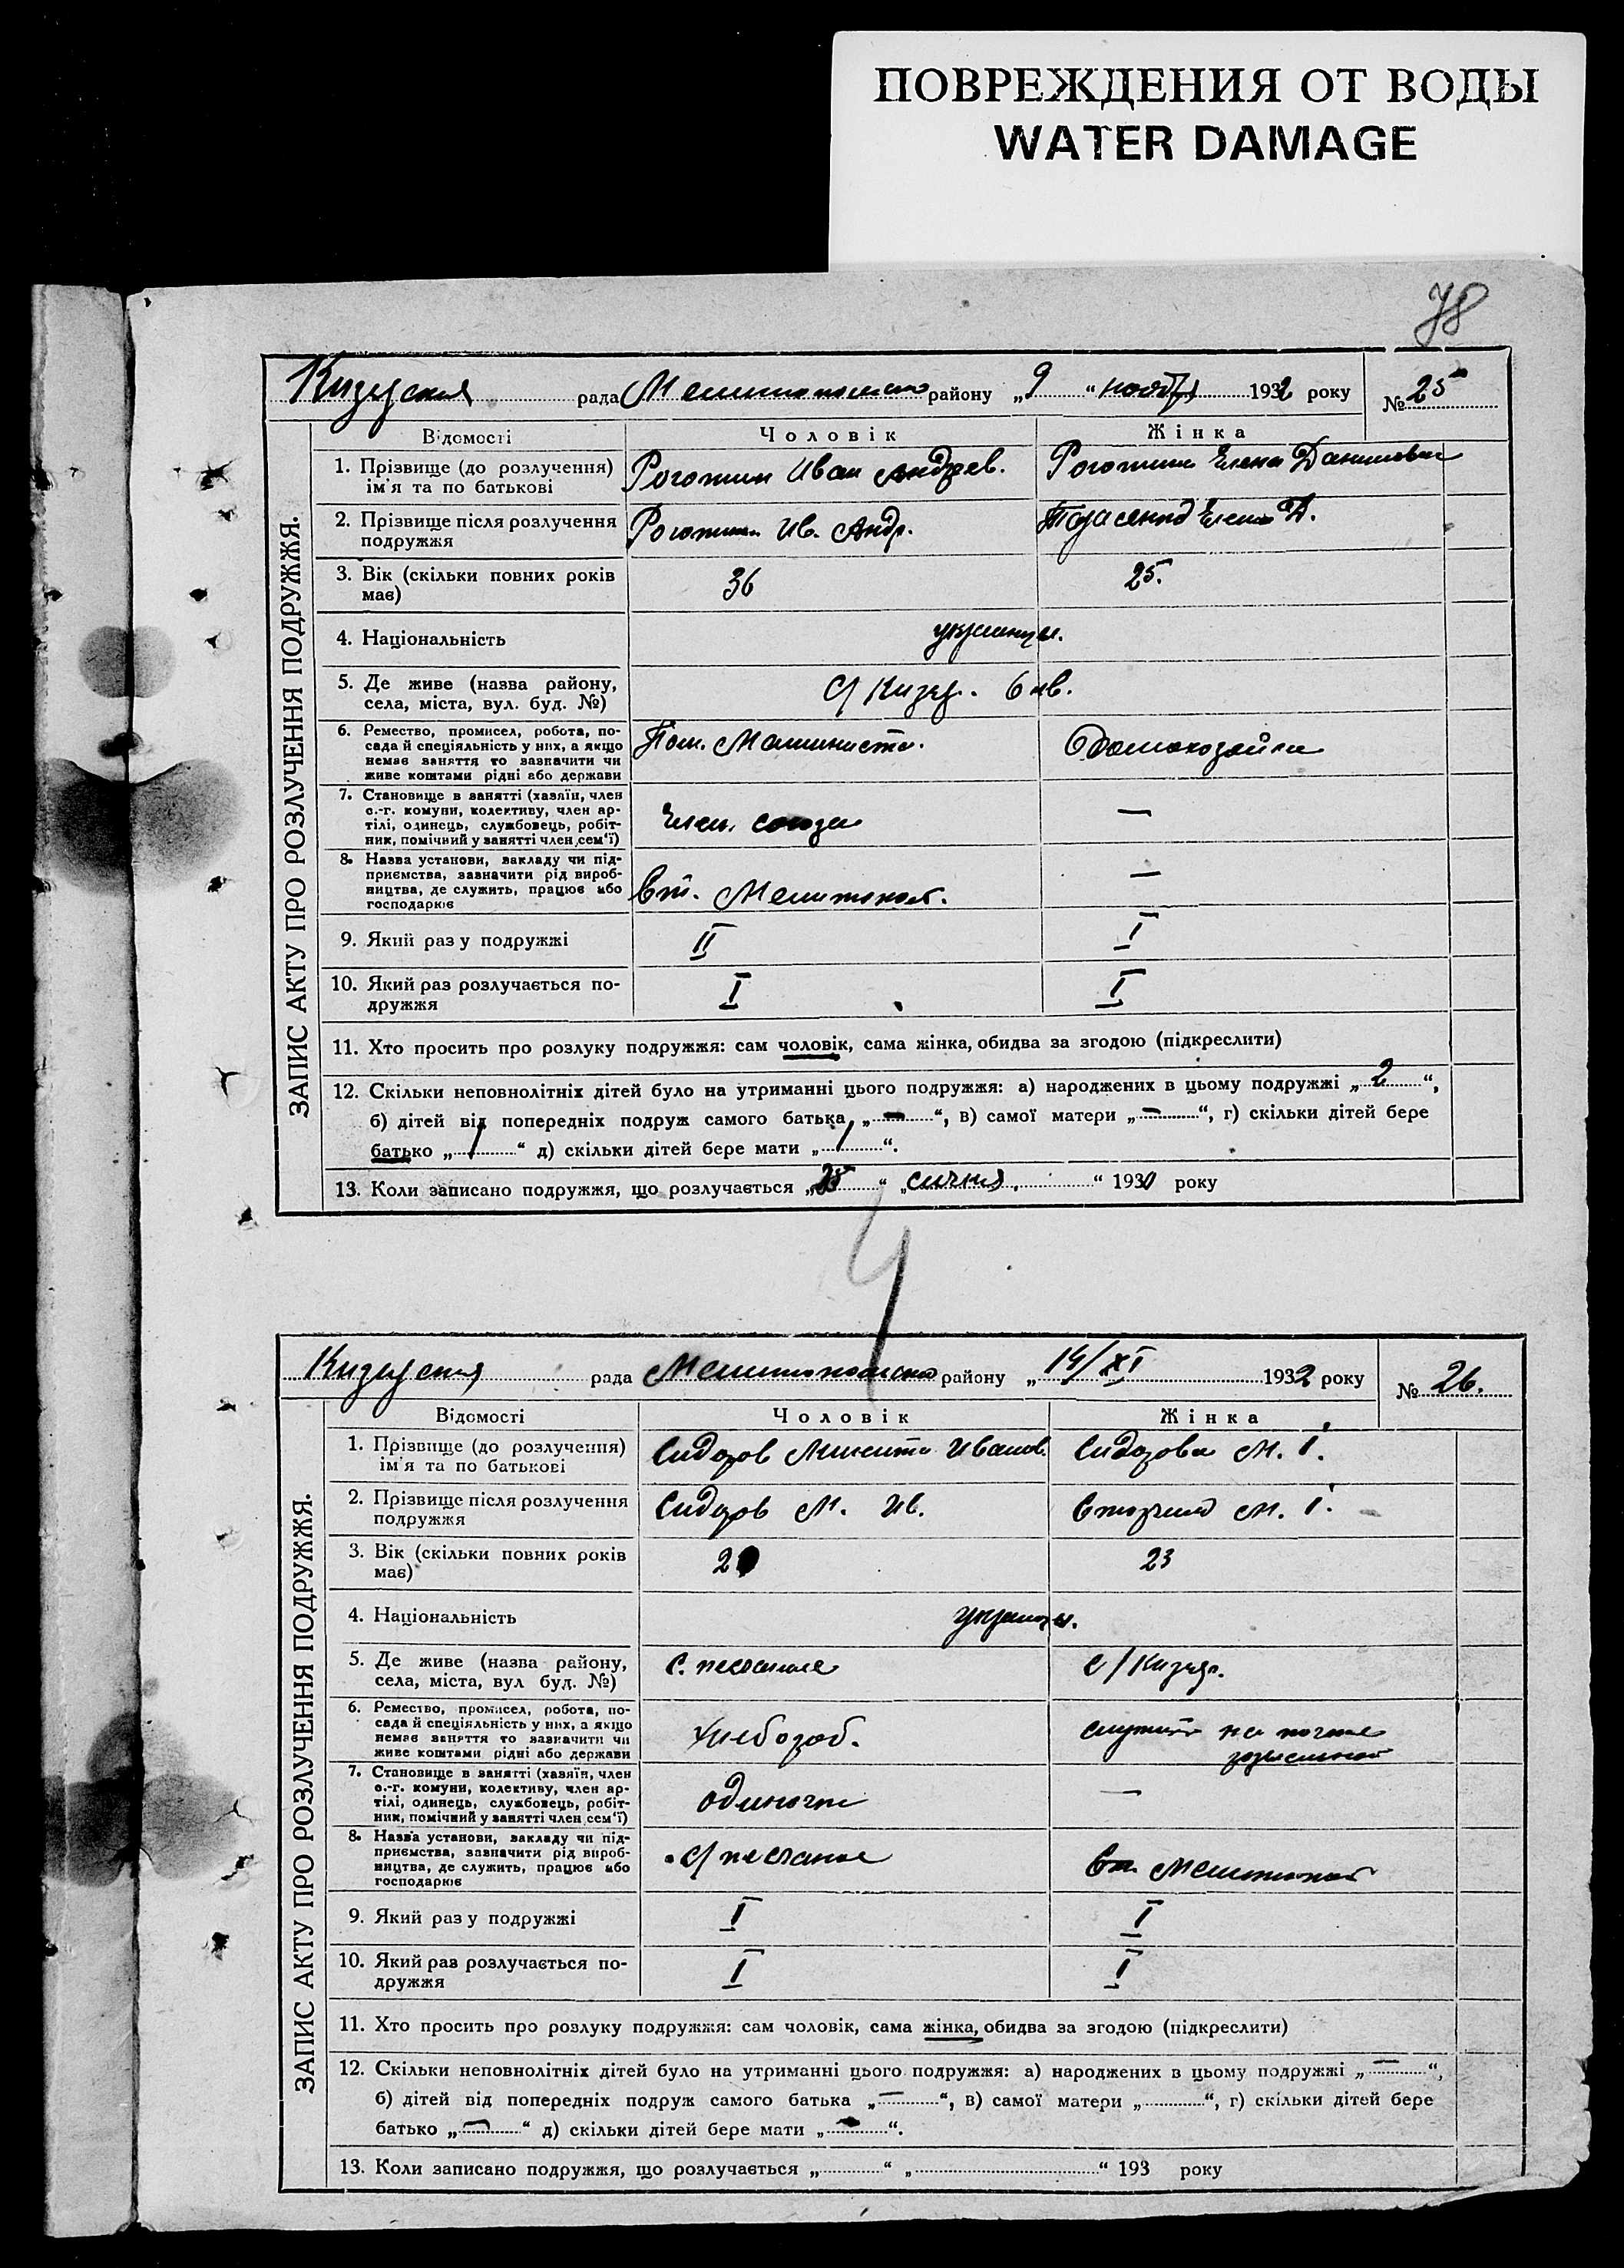 ПОВРЕЖДЕНИЯ ОТ ВОДЫ
WATER DAMAGE
78
рада Мелитопольско району „9“ ноября 1932 року № 25
ЗАПИС АКТУ ПРО РОЗЛУЧЕННЯ ПОДРУЖЖЯ.
Відомості Чоловік Жінка
1. Прізвище (до розлучення) ім'я та по батькові Иван Андреев. Елена Даниловна
2. Прізвище після розлучення подружжя Ив. Андр. Елена Д.
3. Вік (скільки повних років має) 36 25.
4. Національність украинцы.
5. Де живе (назва району, села, міста, вул. буд. №) с/ Кизеяр. 6 кв.
6. Ремество, промисел, робота, посада й спеціяльність у них, а якщо немає заняття то зазначити чи живе коштами рідні або держави Пом. Машиниста. Домохозяйка
7. Становище в занятті (хазяїн, член с.-г. комуни, колективу, член артілі, одинець, службовець, робітник, помічний у занятті член сем'ї) Член. союза —
8. Назва установи, закладу чи підприємства, зазначити рід виробництва, де служить, працює або господарює Мелитопол. —
9. Який раз у подружжі II I
10. Який раз розлучається подружжя I I
11. Хто просить про розлуку подружжя: сам чоловік, сама жінка, обидва за згодою (підкреслити)
12. Скільки неповнолітніх дітей було на утриманні цього подружжя: а) народжених в цьому подружжі „2“,
б) дітей від попередніх подруж самого батька „—“, в) самої матери „—“, г) скільки дітей бере
батько „1“ д) скільки дітей бере мати „1“.
13. Коли записано подружжя, що розлучається „25“ „сичня.“ 1930 року
рада Мелитопольско району „14/XI 1932 року № 26.
ЗАПИС АКТУ ПРО РОЗЛУЧЕННЯ ПОДРУЖЖЯ.
Відомості Чоловік Жінка
1. Прізвище (до розлучення) ім'я та по батькові Сидоров Микита Иванов. Сидорова М. І.
2. Прізвище після розлучення подружжя Сидоров М. Ив. М. І.
3. Вік (скільки повних років має) 23
4. Національність украинцы.
5. Де живе (назва району, села, міста, вул буд. №) с. песчаное с/ Кизеяр.
6. Ремество, промисел, робота, посада й спеціяльність у них, а якщо немає заняття то зазначити чи живе коштами рідні або держави хлебороб. служит на почте
7. Становище в занятті (хазяїн, член с.-г. комуни, колективу, член артілі, одинець, службовець, робітник, помічний у занятті член сем'ї) одиночка —
8. Назва установи, закладу чи підприємства, зазначити рід виробництва, де служить, працює або господарює с/ песчаное Мелитопол
9. Який раз у подружжі I I
10. Який раз розлучається подружжя I I
11. Хто просить про розлуку подружжя: сам чоловік, сама жінка, обидва за згодою (підкреслити)
12. Скільки неповнолітніх дітей було на утриманні цього подружжя: а) народжених в цьому подружжі „—“,
б) дітей від попередніх подруж самого батька „—“, в) самої матери „“, г) скільки дітей бере
батько „—“ д) скільки дітей бере мати „—“.
13. Коли записано подружжя, що розлучається „“ „“ 193 року